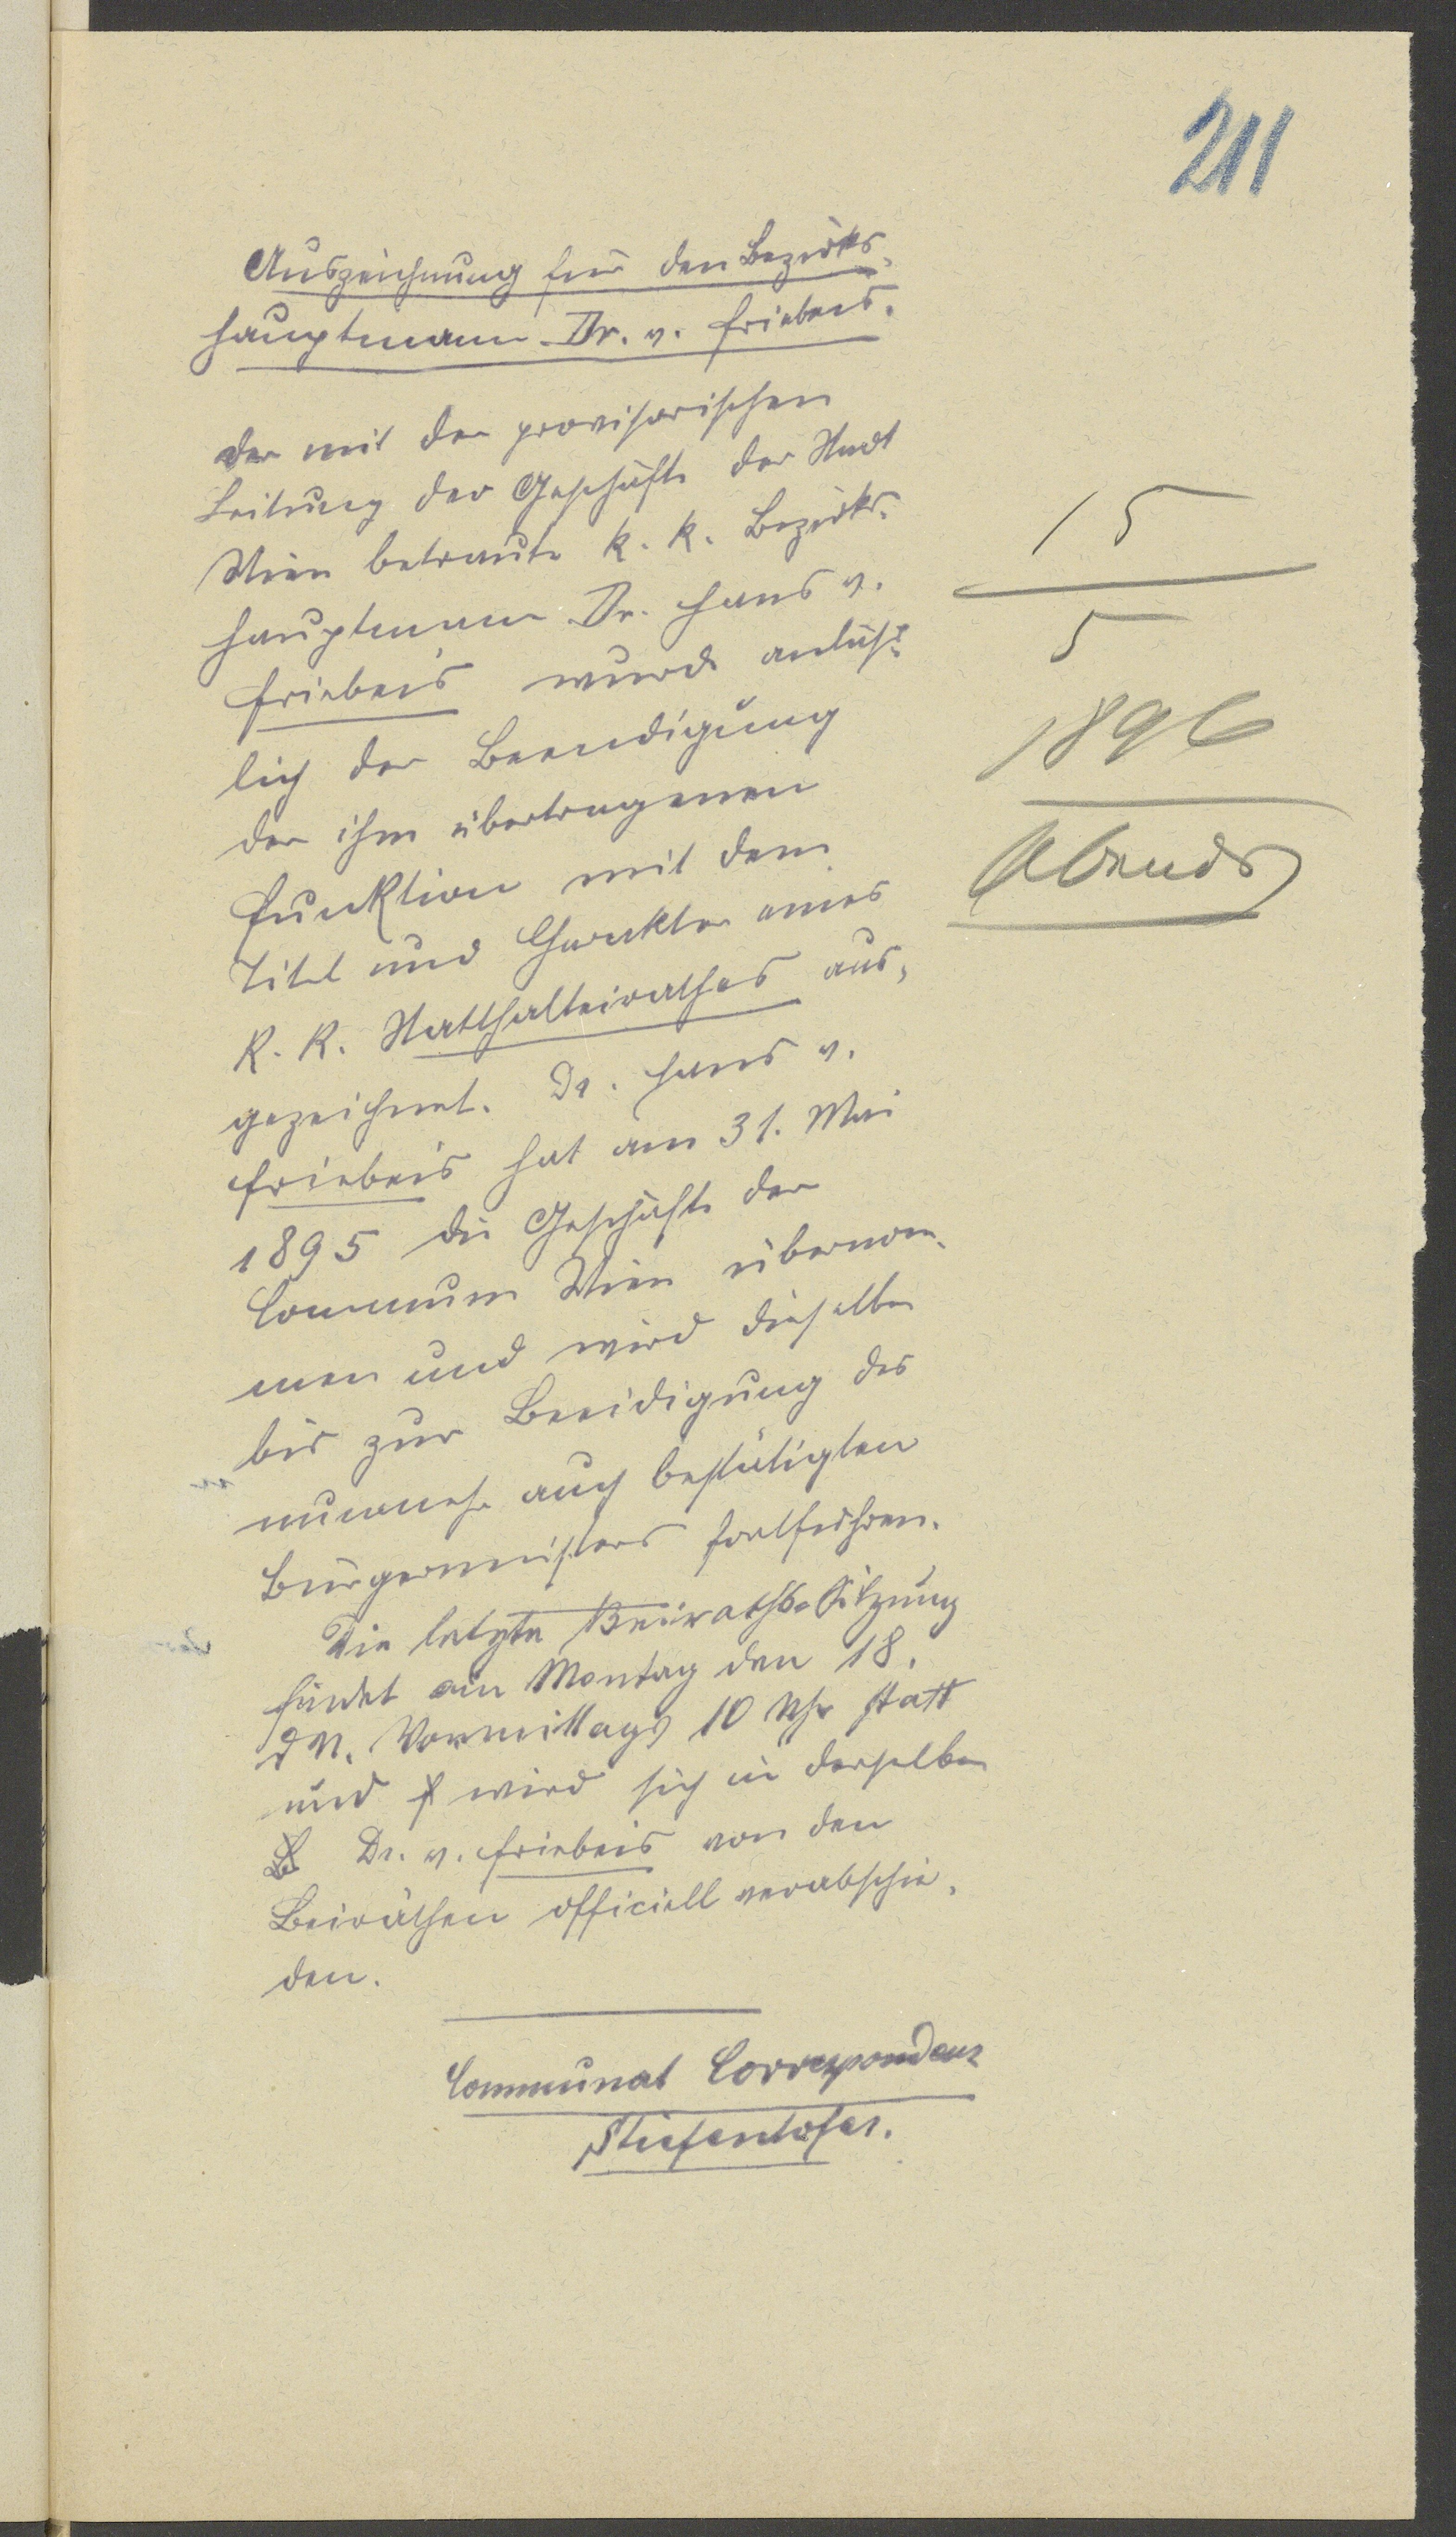 211
Auszeichnung für den Bezirks-
hauptmann Dr. v. Friebeis.
Der mit der provisorischen
Leitung der Geschäfte der Stadt
Wien betraute k. k. Bezirks-
hauptmann Dr. Hans v.
Friebeis wurde anläß-
lich der Beendigung
der ihm übertragenen
Funktion mit dem
Titel und Charakter eines
k. k. Statthaltereirathes aus-
gezeichnet. Dr. Hans v.
Friebeis hat am 31. Mai
1895 die Geschäfte der
Commune Wien übernom-
men und wird dieselben
bis zur Beeidigung des
nunmehr auch bestätigten
Bürgermeisters fortführen.
Die letzte Beiraths-Sitzung
findet am Montag den 18.
d M. Vormittags 10 Uhr statt
und wird sich in derselben
Dr. v. Friebeis von den
Beiräthen officiell verabschie-
den.
Communal Correspondenz
Stiefenhofer.
15
5
1896
Abends